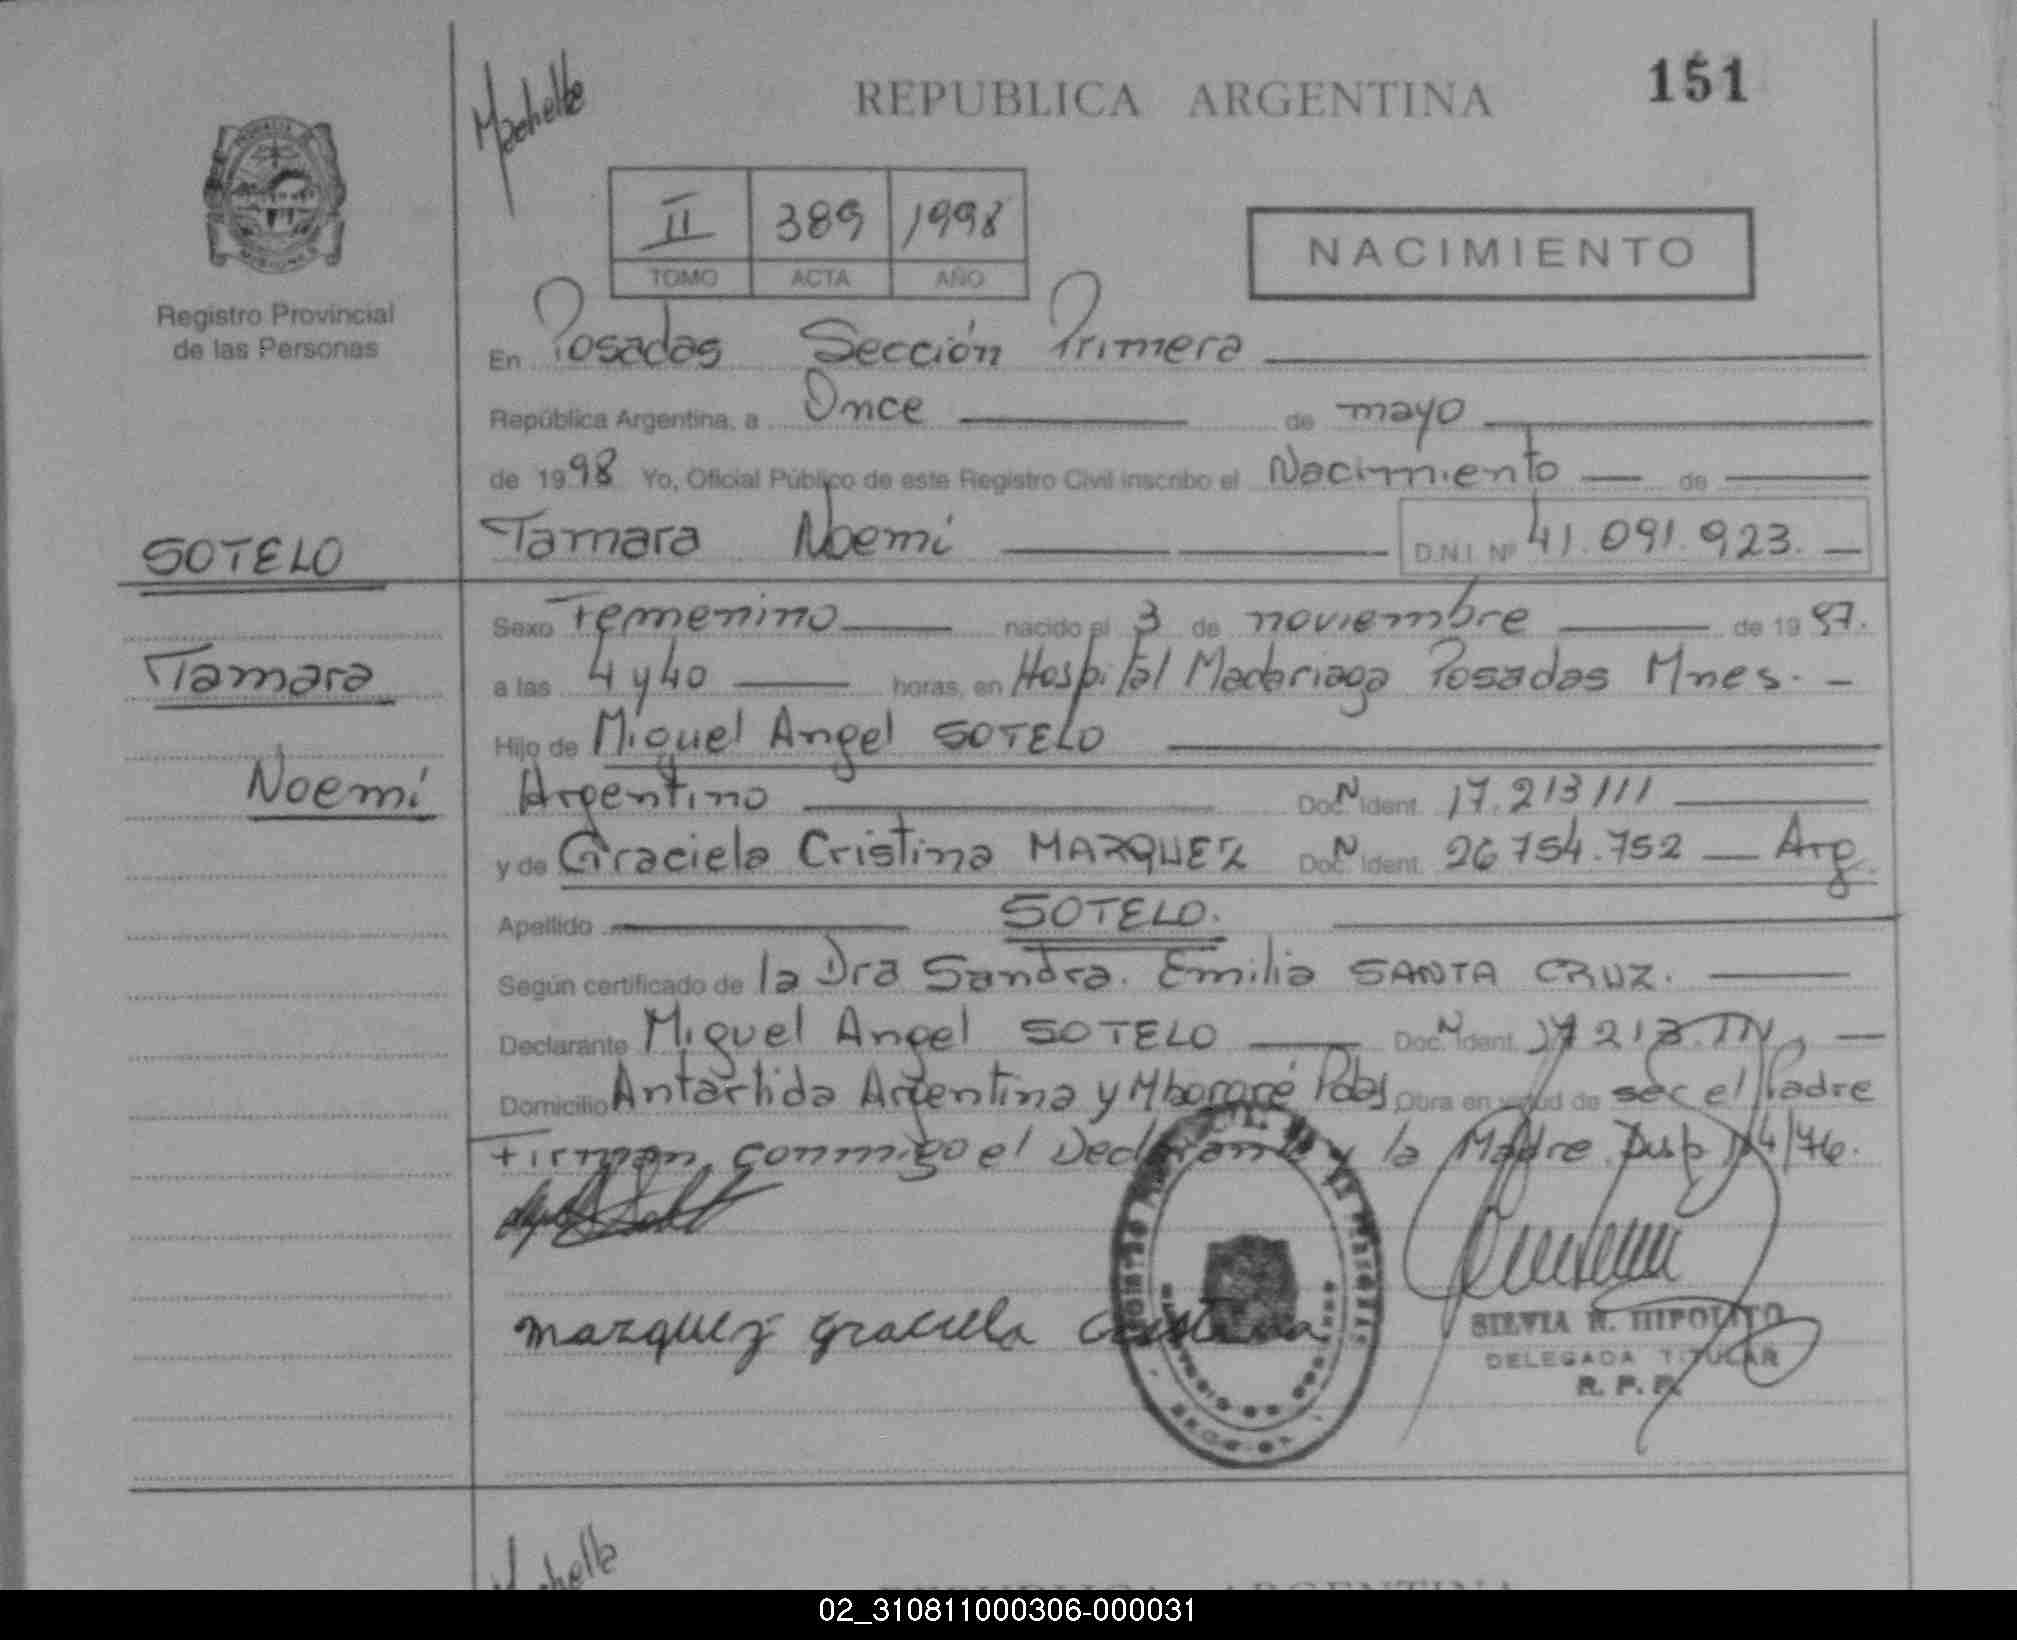 REPUBLICA ARGENTINA
151
II 389 1998
TOMO ACTA AÑO
NACIMIENTO
Registro Provincial
de las Personas
En Posadas Sección Primera
República Argentina, a Once de mayo
de 1998 Yo, Oficial Público de este Registro Civil inscribo el Nacimiento de
Tamara Noemi D.N.I. Nº 41.091.923.
SOTELO
Tamara
Noemi
Sexo Femenino nacido el 3 de noviembre de 1997.
a las 4 y 40 horas, en Hospital Madariaga Posadas Mnes.
Hijo de Miguel Angel SOTELO
Argentino Doc. N Ident. 17.213111
y de Graciela Cristina MARQUEZ Doc. N Ident. 26754.752 Arg.
Apellido SOTELO.
Según certificado de la Dra Sandra. Emilia SANTA CRUZ.
Declarante Miguel Angel SOTELO Doc. N Ident. 17213.111
Domicilio Antartida Argentina y Mbororé Pdas Obra en virtud de ser el Padre
Firman conmigo el Declarante y la Madre
marquez graciela cristina
SILVIA R. HIPOLITO
DELEGADA TITULAR
R. P. P.
REPUBLICA ARGENTINA
02_310811000306-000031